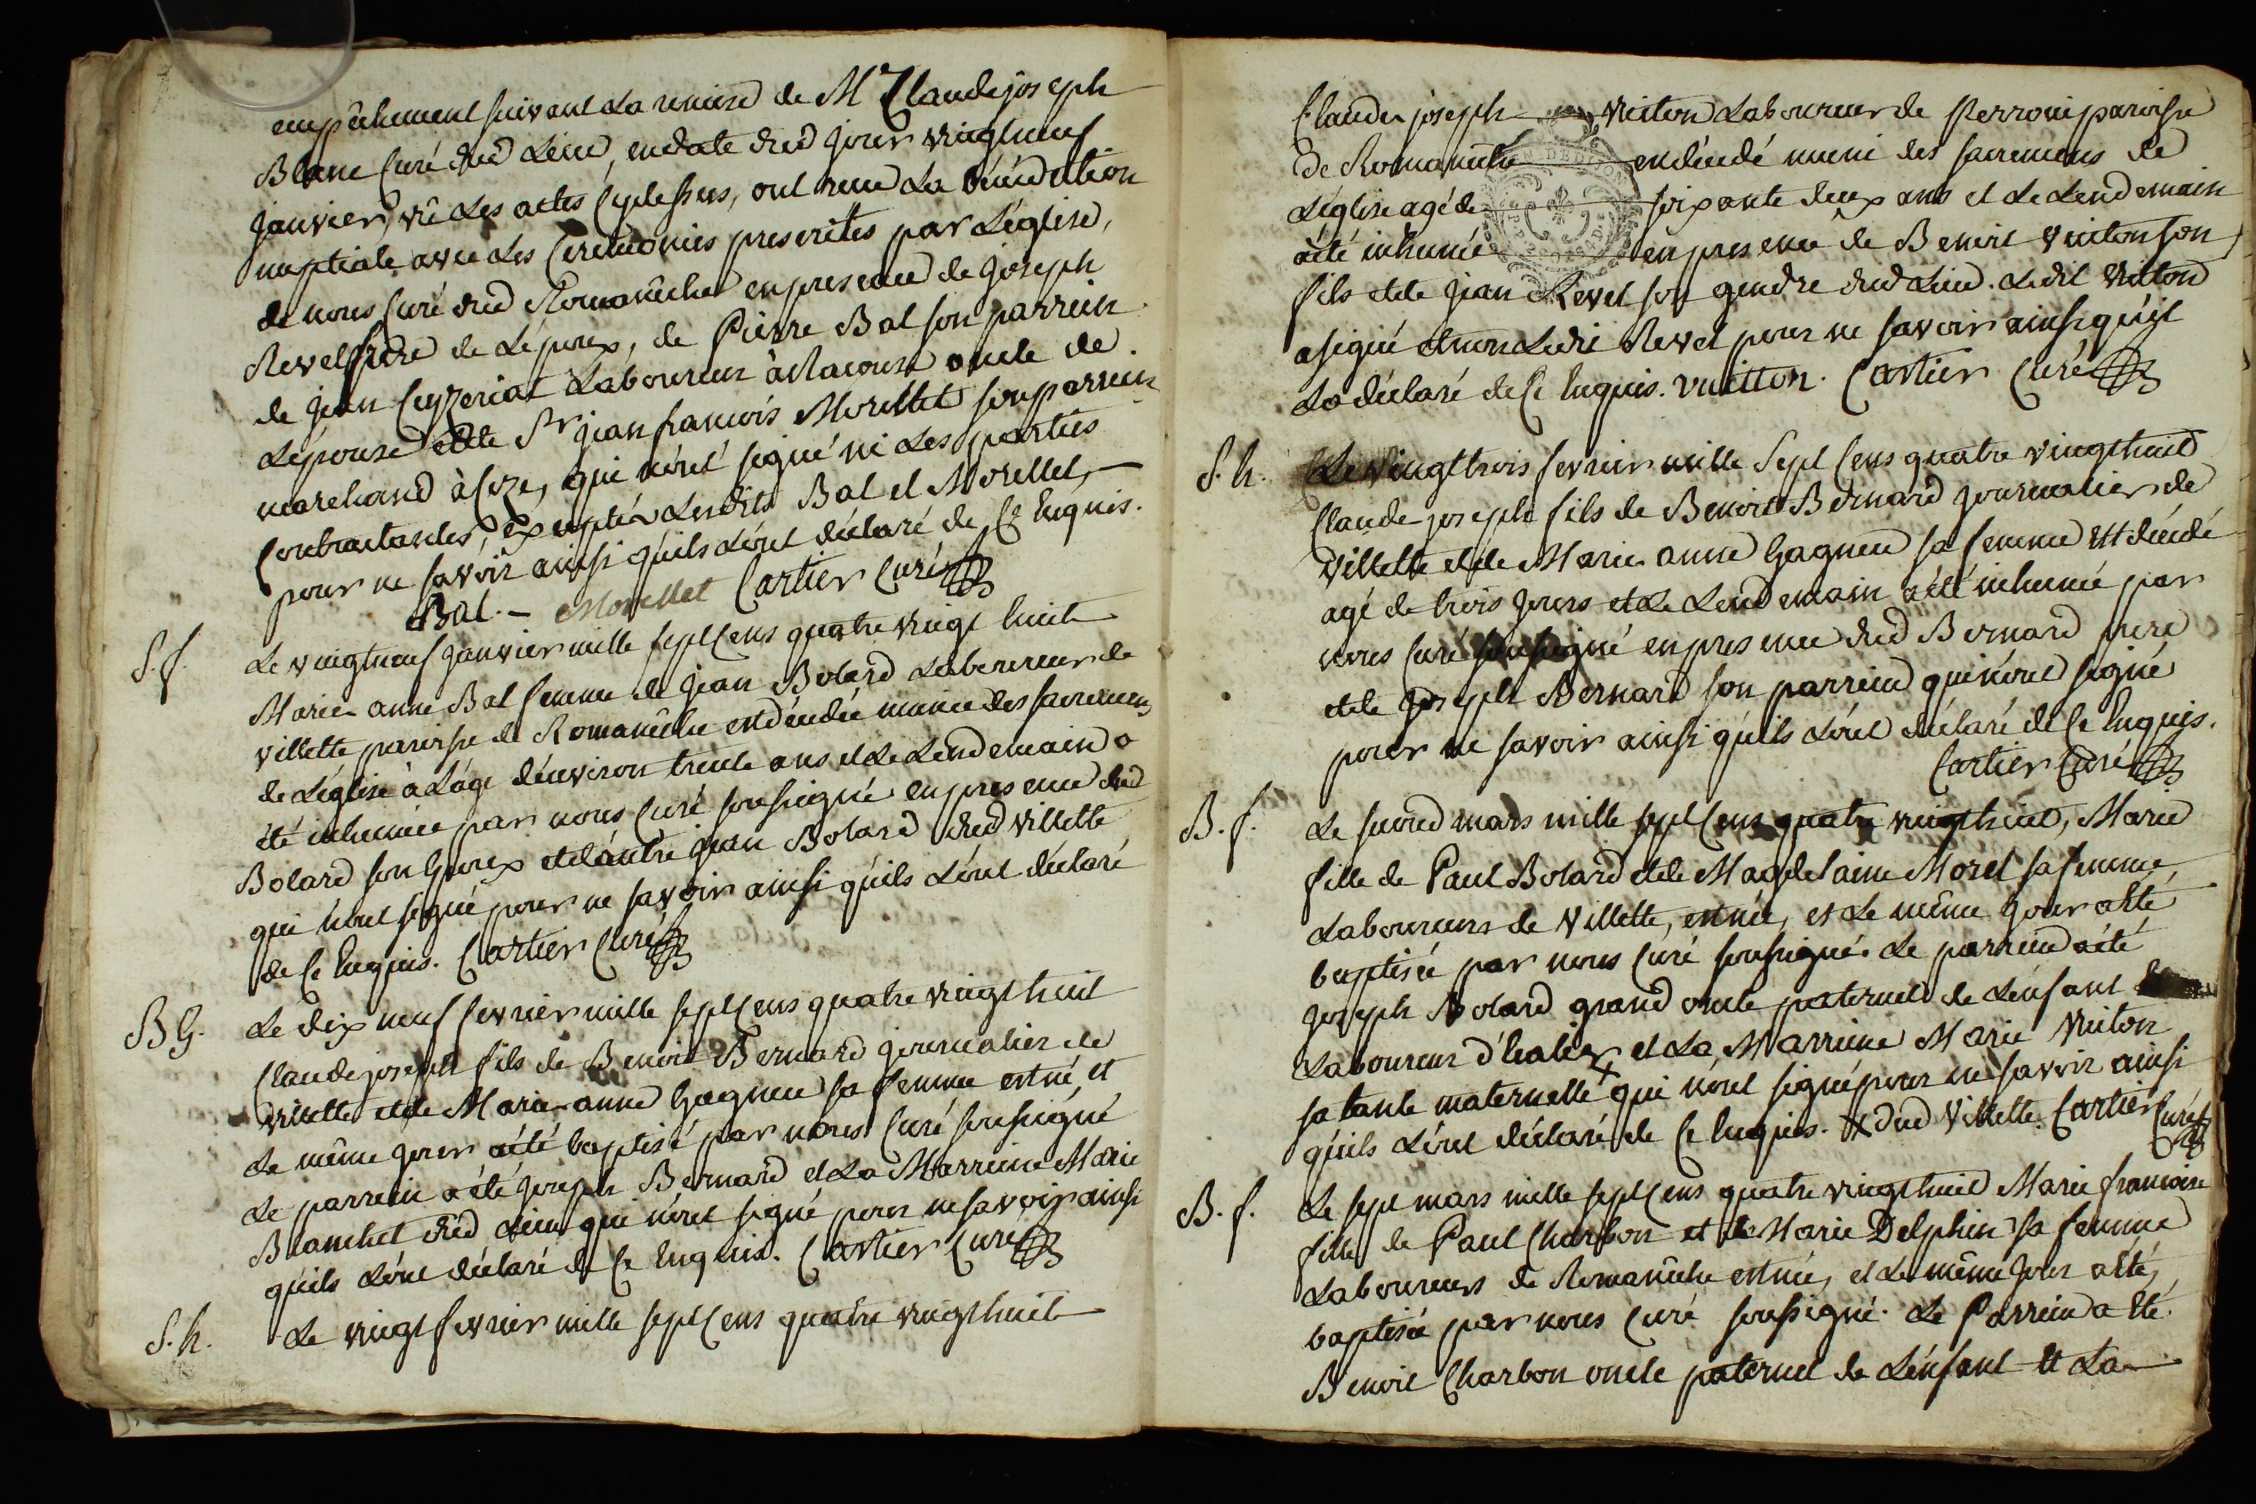 empêchement suivant la remise de Mr Claude joseph
Blanc Curé dud Lieu, en date dud jour vingtneuf
janvier, vû les actes Cydessus, ont reçu la bénédiction
nuptiale avec les Ceremonies prescrites par L'église,
de nous Curé dud Romanêche en presence de joseph
Revel frere de L'époux, de Pierre Bal son parrein
de jean Ceyzeriat Laboureur à Racouse oncle de
L'épouse et de Sr jean francois Morellet son parrein
marchand à Cize, qui n'ont signé ni les parties
Contractantes, exceptés lesdits Bal et Morellet,
pour ne savoir ainsi qu'ils L'ont déclaré de Ce Enquis.
Bal. - Morellet Cartier Curé
S. f. Le vingtneuf janvier mille sept Cens quatre vingt huit
Marie anne Bal femme de jean Bolard Laboureur de
villette paroisse de Romanêche est décedée munie des sacremens
de L'église à L'age d'environ trente ans et le Lendemain a
été inhumée par nous Curé soussigné en presence dud
Bolard son Epoux et d'autre jean Bolard dud villette
qui n'ont signé pour ne savoir ainsi qu'ils L'ont déclaré
de Ce Enquis. Cartier Curé
B G. Le dix neuf fevrier mille sept Cens quatre vingt huit
Claude joseph fils de Benoit Bernard journalier de
villette et de Marie anne Gagneu sa femme est né, et
Le même jour a été baptisé par nous Curé soussigné
Le parrein a été joseph Bernard et La Marreine Marie
Blanchet dud Lieu qui n'ont signé pour ne savoir ainsi
qu'ils L'ont déclaré de Ce Enquis. Cartier Curé
S. h. Le vingt fevrier mille sept Cens quatre vingt huit
Claude joseph Vuiton Laboureur de Perroui paroisse
de Romanêche est décedé muni des sacremens de
L'église agé de soixante deux ans et Le Lendemain
a été inhumé en presence de Benoit Vuiton son
fils et de jean Revel son gendre dud Lieu. Ledit Vuiton
a signé et non Ledit Revel pour ne savoir ainsi qu'il
La déclaré de Ce Enquis. Vuitton. Cartier Curé
S. h. Le vingt trois fevrier mille Sept Cens quatre vingt huit
Claude joseph fils de Benoit Bernard journalier de
Villette et de Marie anne Gagneu sa femme Est décedé
agé de trois jours et Le Lendemain a été inhumé par
nous Curé soussigné en presence dud Bernard pere
et de joseph Bernard son parrein qui n'ont signé
pour ne savoir ainsi qu'ils L'ont déclaré de Ce Enquis.
Cartier Curé
B. f. Le second mars mille sept Cens quatre vingt huit, Marie
fille de Paul Bolard et de Magdelaine Morel sa femme,
Laboureurs de Villette, est née, et Le même jour a Eté
baptisée par nous Curé soussigné. Le parrein a été
joseph Bolard grand oncle paternel de L'enfant
Laboureur d'healier et La Marreine Marie Vuiton
sa tante maternelle x qui n'ont signé pour ne savoir ainsi
qu'ils L'ont déclaré de Ce Enquis. x dud Villette. Cartier Curé
B. f. Le sept mars mille sept Cens quatre vingt huit Marie francoise
fille de Paul Charbon et de Marie Delphin sa femme
Laboureurs de Romanêche est née, et Le même jour a Eté,
baptisée par nous Curé soussigné. Le Parrein a Eté
Benoit Charbon oncle paternel de L'enfant Et La